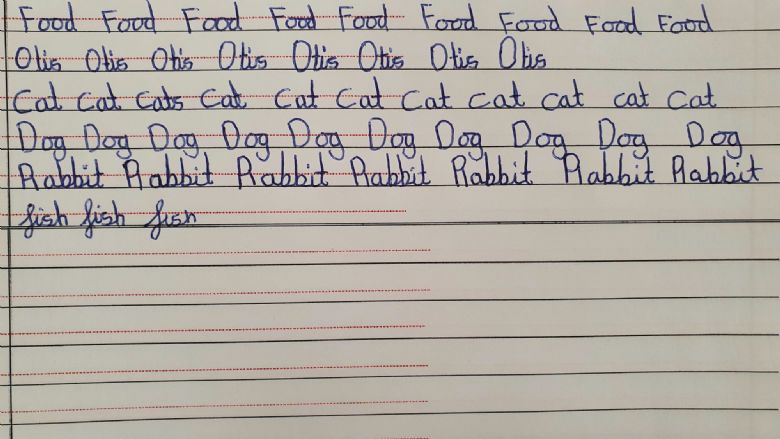 Food Food Food Food Food Food Food Food Food
Otis Otis Otis Otis Otis Otis Otis Otis
Cat Cat Cats Cat Cat Cat Cat cat cat cat Cat
Dog Dog Dog Dog Dog Dog Dog Dog Dog Dog
Rabbit Rabbit Rabbit Rabbit Rabbit Rabbit Rabbit
fish fish fish